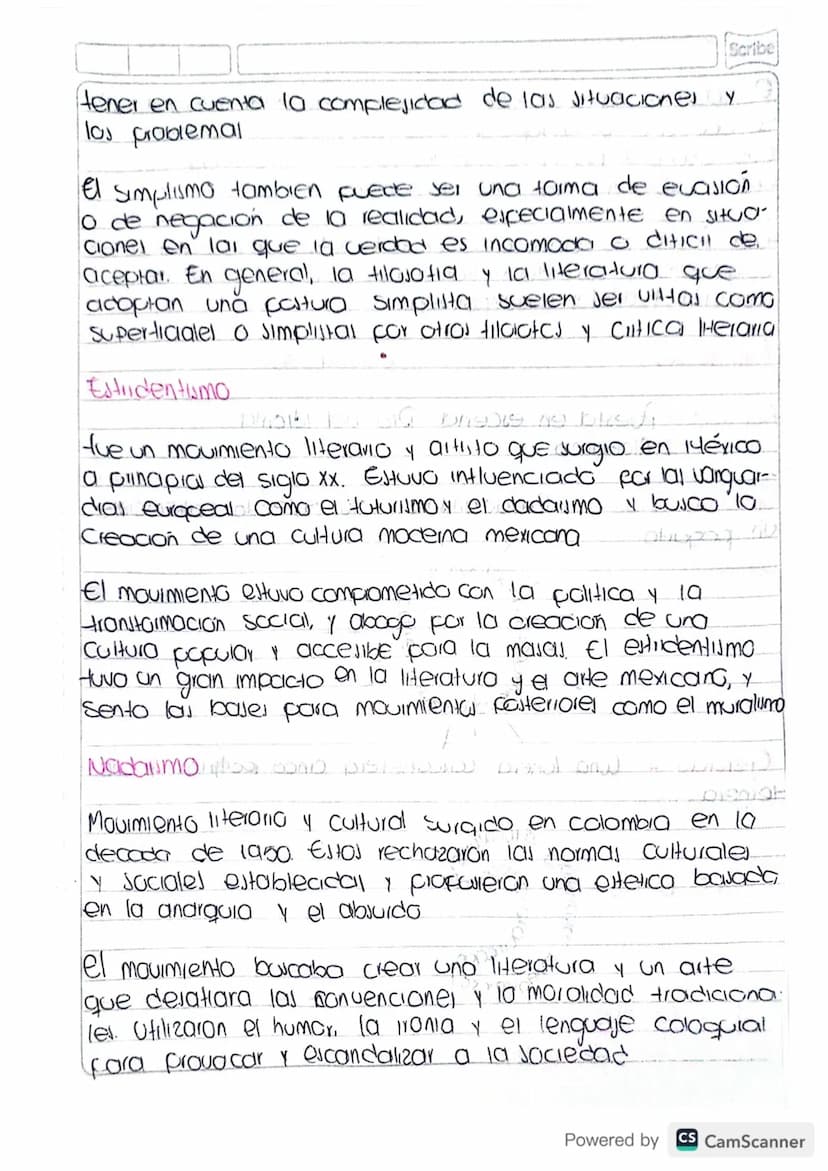 Scribe
tener en cuenta la complejidad de las situaciones y
los problemas
El simplismo tambien puede ser una forma de evasión
o de negación de la realidad, especialmente en situa-
ciones en las que la verdad es incomoda o dificil de
aceptar. En general, la filosofia y la literatura que
adoptan una postura simplista suelen ser vistas como
superficiales o simplistas por otros filosofos y critica literaria
Estridentismo
fue un movimiento literario y artisto que surgio en México
a principios del siglo xx. Estuvo influenciado por las vanguar-
dias europeas como el futurismo y el dadaismo y busco la
Creación de una cultura moderna mexicana
El movimiento estuvo comprometido con la politica y la
transformación social, y abogo por la creacion de una
cultura popular y accesible para la masas. El estridentismo
tuvo un gran impacto en la literatura y el arte mexicano, y
sento las bases para movimientos posteriores como el muralismo
Nadaismo
Movimiento literario y cultural surgido en colombia en la
decada de 1950. Estos rechazarón las normas culturales
y sociales establecidas y propusieron una estetica basada
en la anarquia y el absurdo
el movimiento buscaba crear una literatura y un arte
que desafiara las convenciones y la moralidad tradiciona
les. Utilizaron el humor, la ironia y el lenguaje coloquial
para provocar y escandalizar a la sociedad
Powered by CS CamScanner